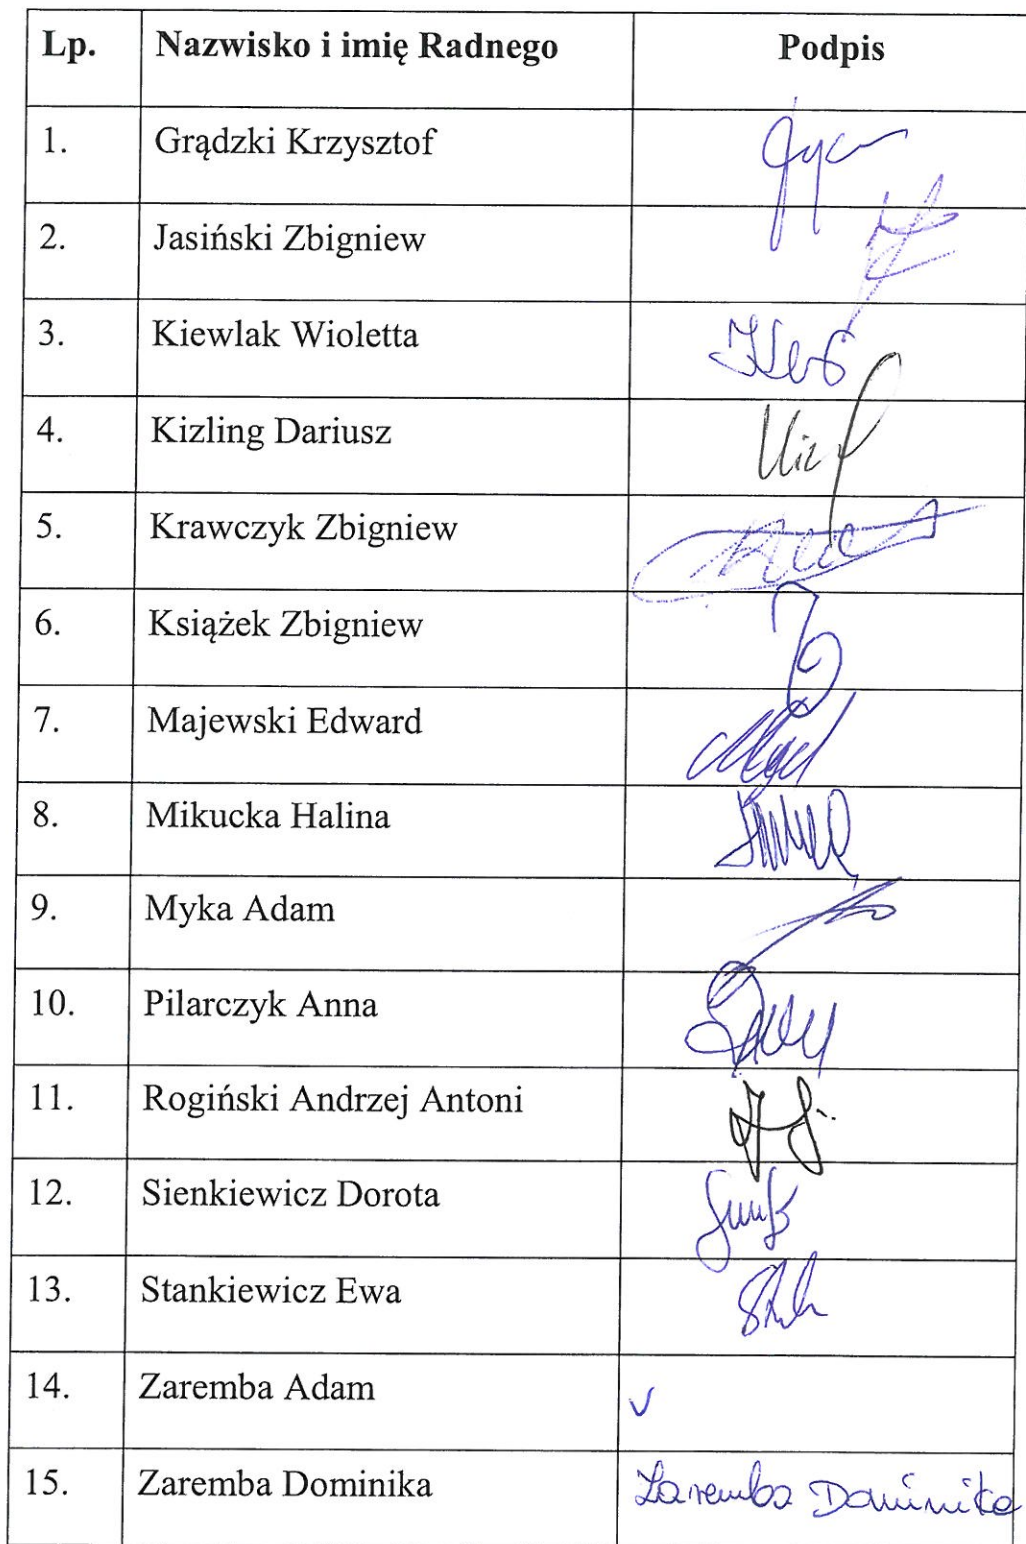 Lp. Nazwisko i imię Radnego Podpis
1. Grądzki Krzysztof
2. Jasiński Zbigniew
3. Kiewlak Wioletta
4. Kizling Dariusz
5. Krawczyk Zbigniew
6. Książek Zbigniew
7. Majewski Edward
8. Mikucka Halina
9. Myka Adam
10. Pilarczyk Anna
11. Rogiński Andrzej Antoni
12. Sienkiewicz Dorota
13. Stankiewicz Ewa
14. Zaremba Adam
15. Zaremba Dominika Zaremba Dominika